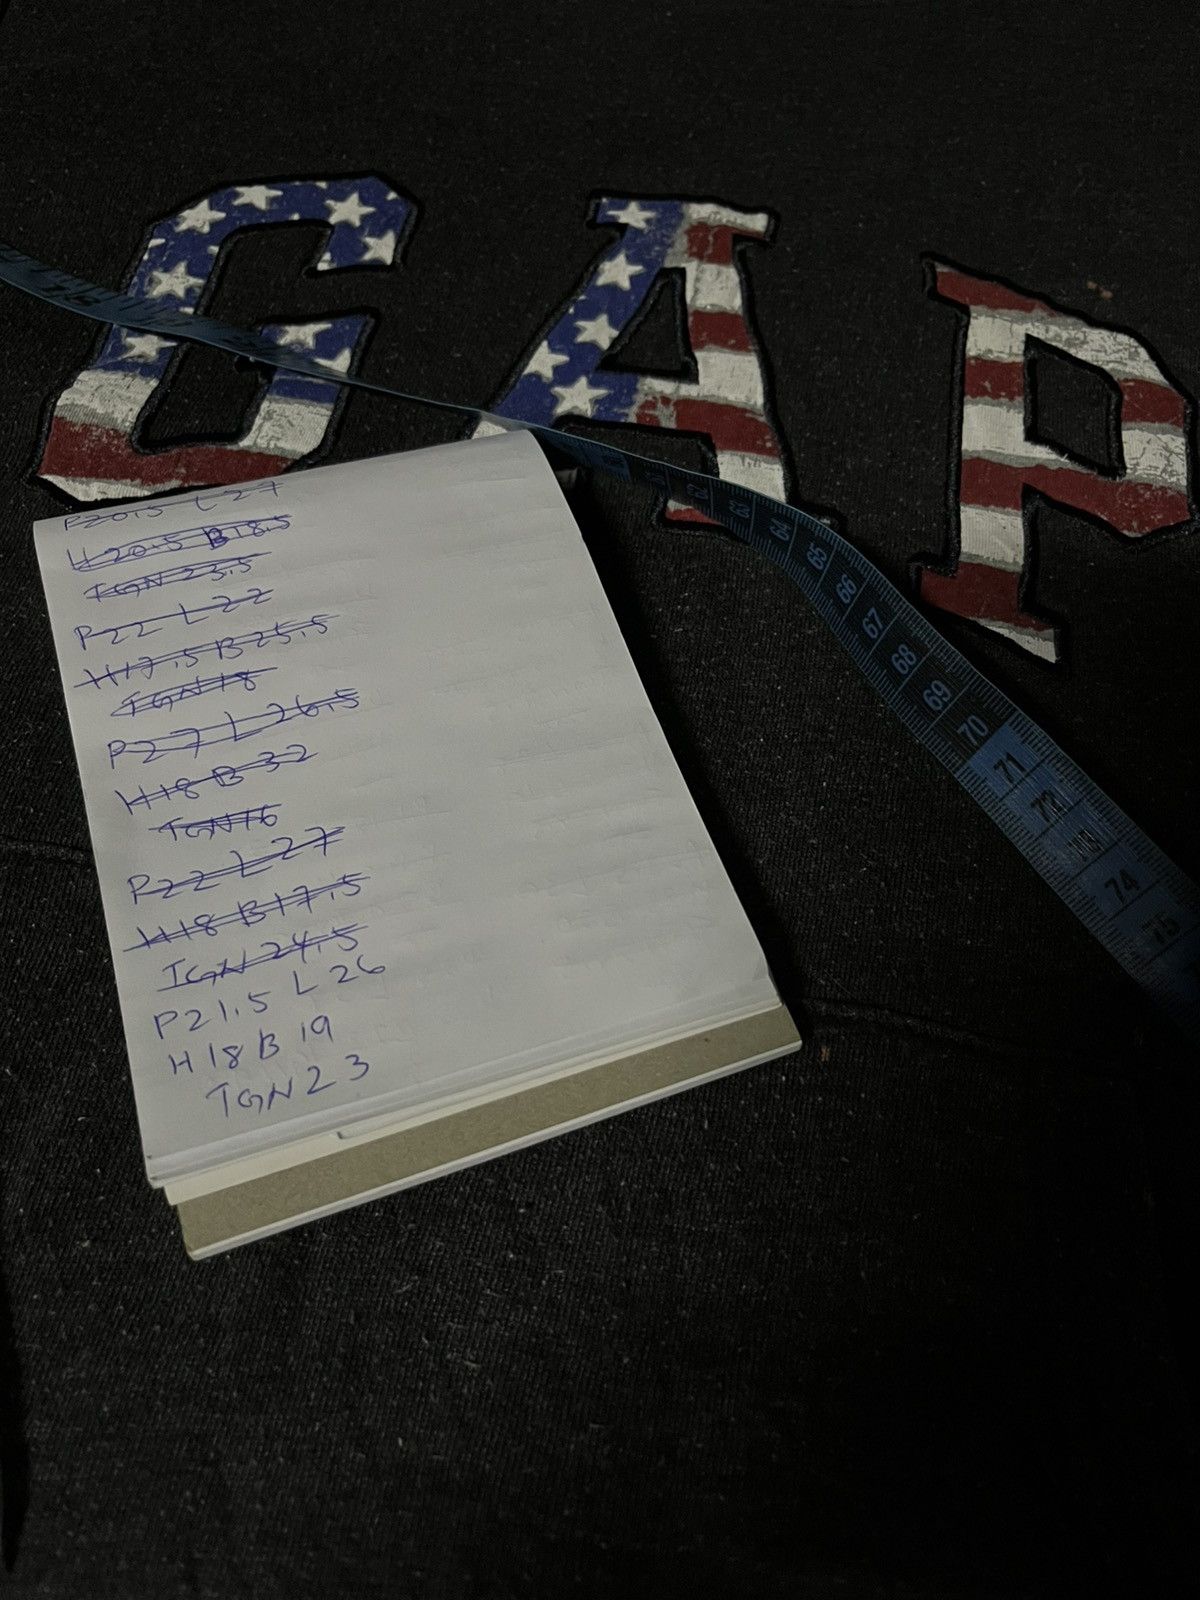 GAP
P20.5 L 27
H 20.5 B 18.5
TGN 23.5
P22 L 22
H17.5 B 25.5
TGN 18
P27 L 26.5
H18 B 32
TGN 16
P22 L 27
H18 B17.5
TGN 24.5
P21.5 L 26
H 18 B 19
TGN 23
64 65 66 67 68 69 70 71 72 73 74 75